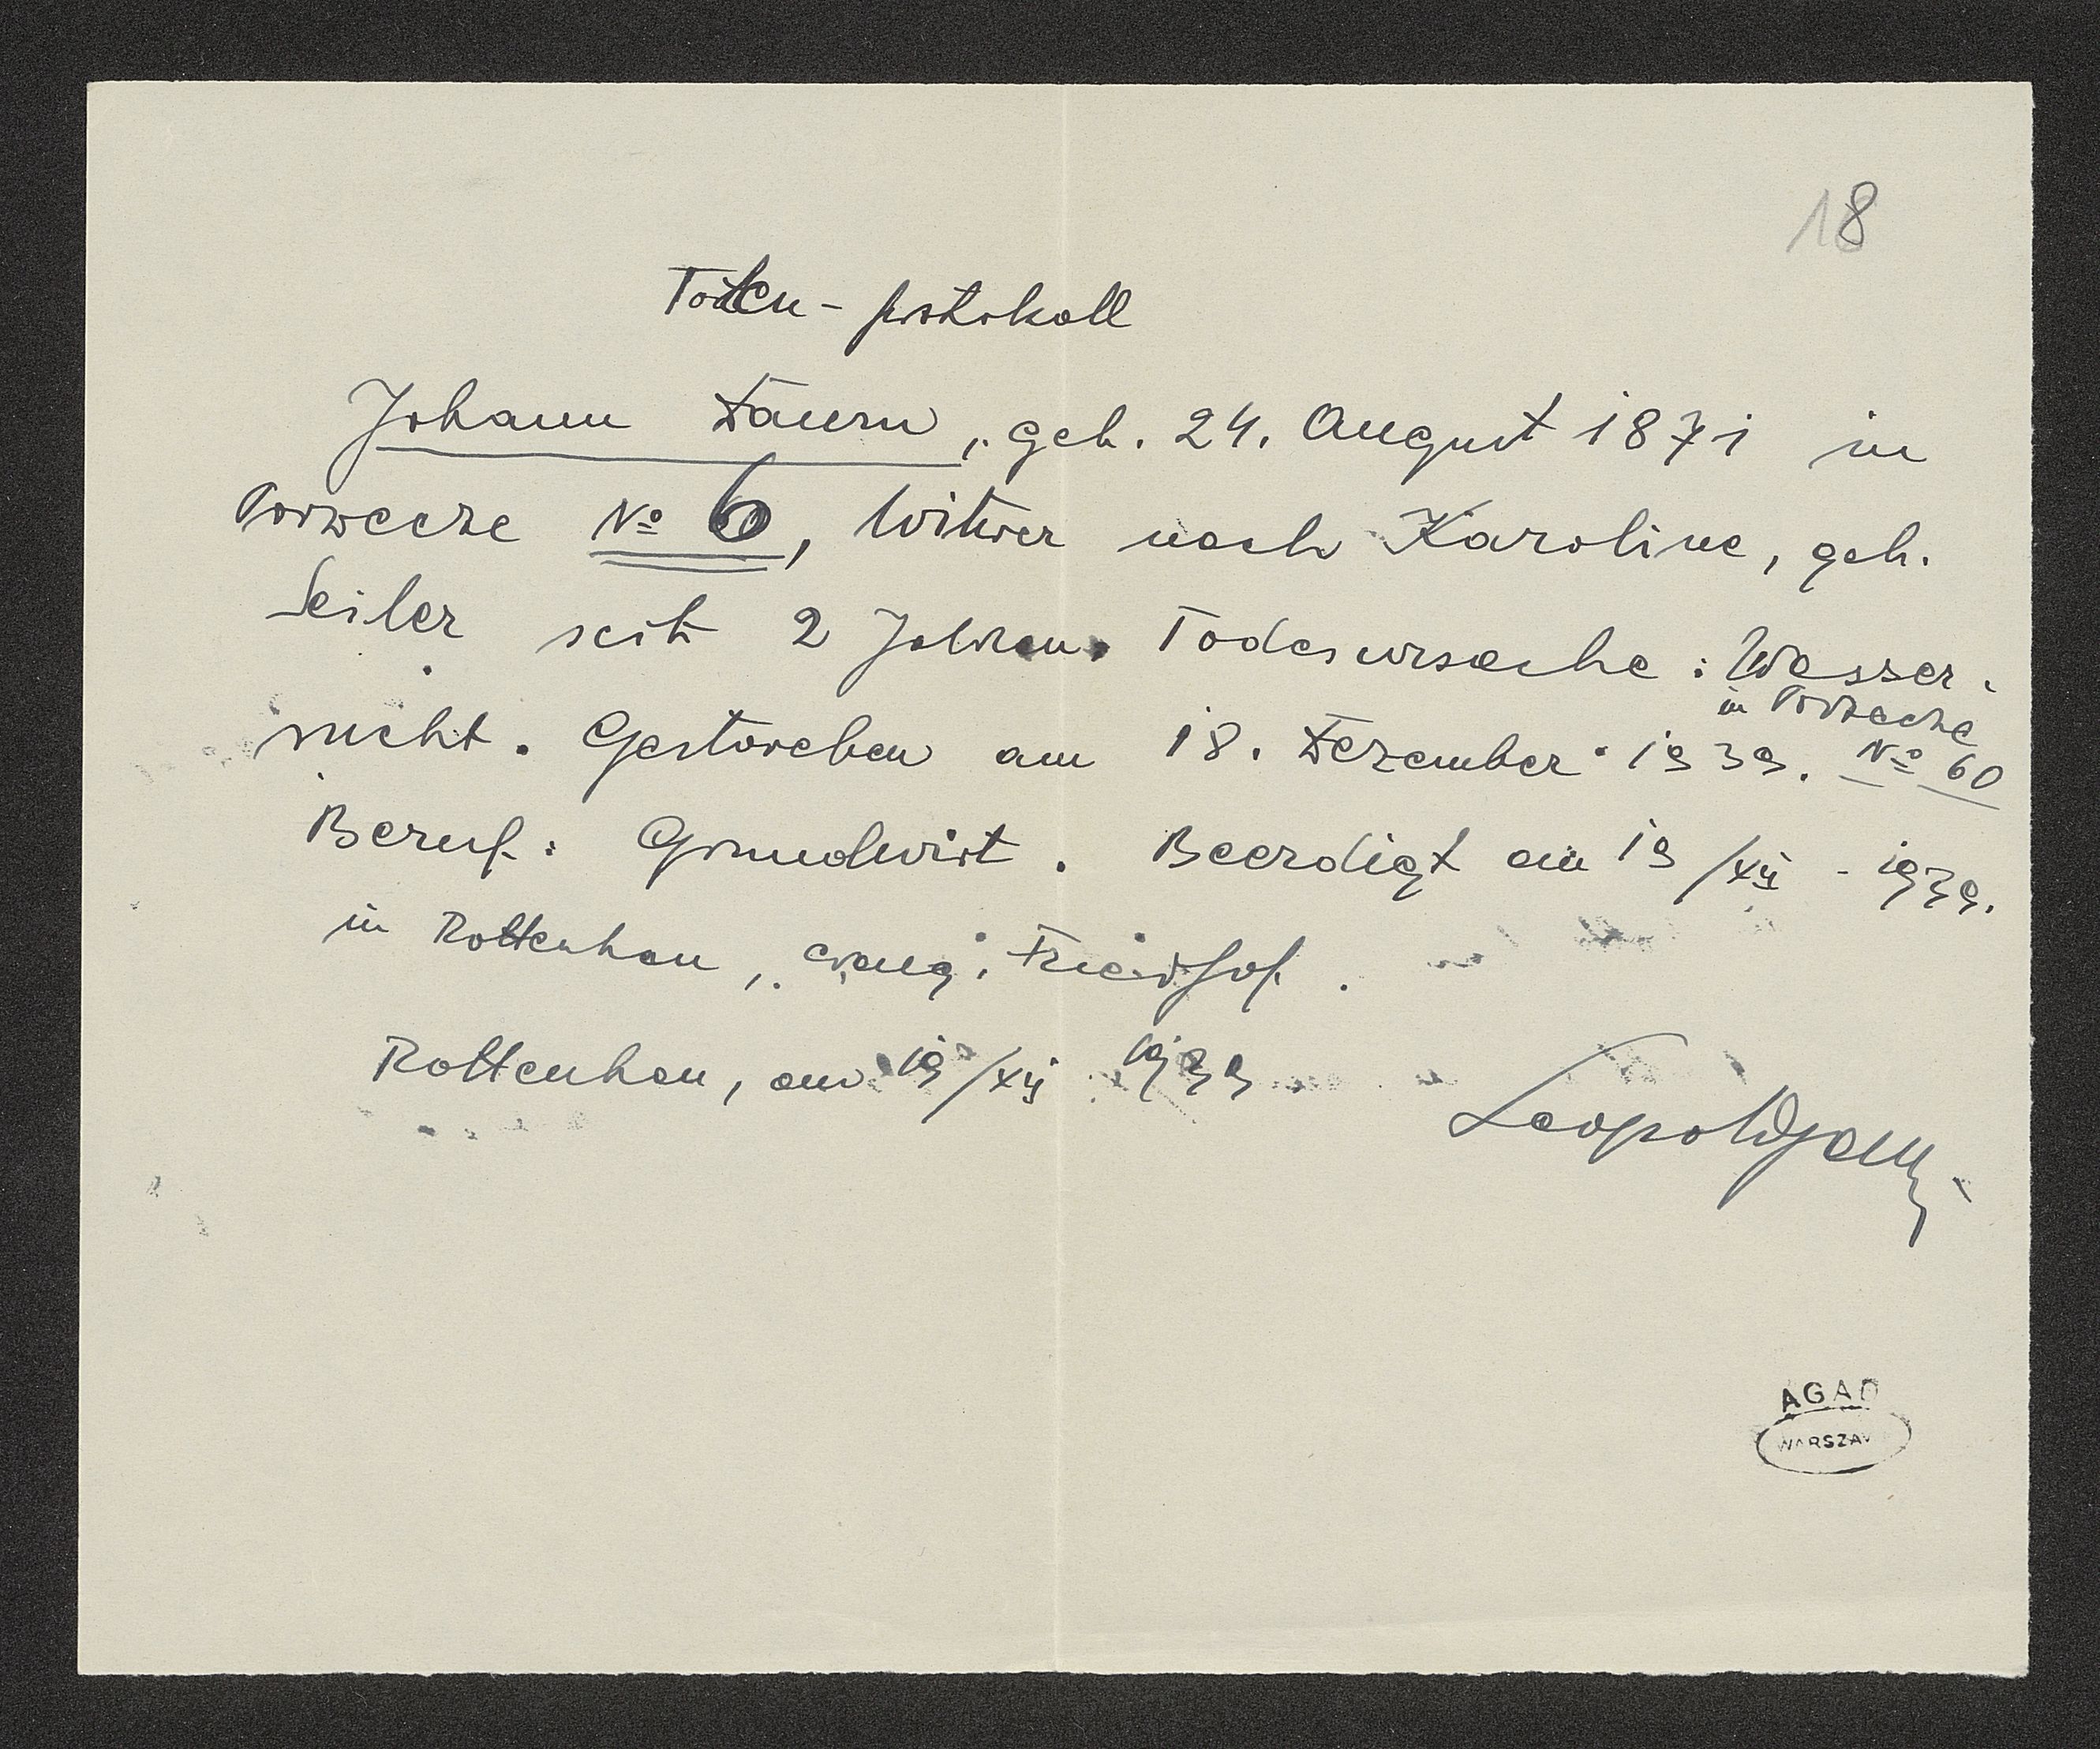 18
Toten-protokoll
Johann Däurn, geb. 24. August 1871 in
Porzecze No 6, Witwer nach Karoline, geb.
Seiler seit 2 Jahren. Todesursache: Wasser-
sucht. Gestorben am 18. Dezember 1939. in Porzecze
No 60
Beruf: Grundwirt. Beerdigt am 19/XII - 1939.
in Rottenhan, evang. Friedhof.
Rottenhan, am 19/XII 1939
Leopold
AGAD
WARSZAW